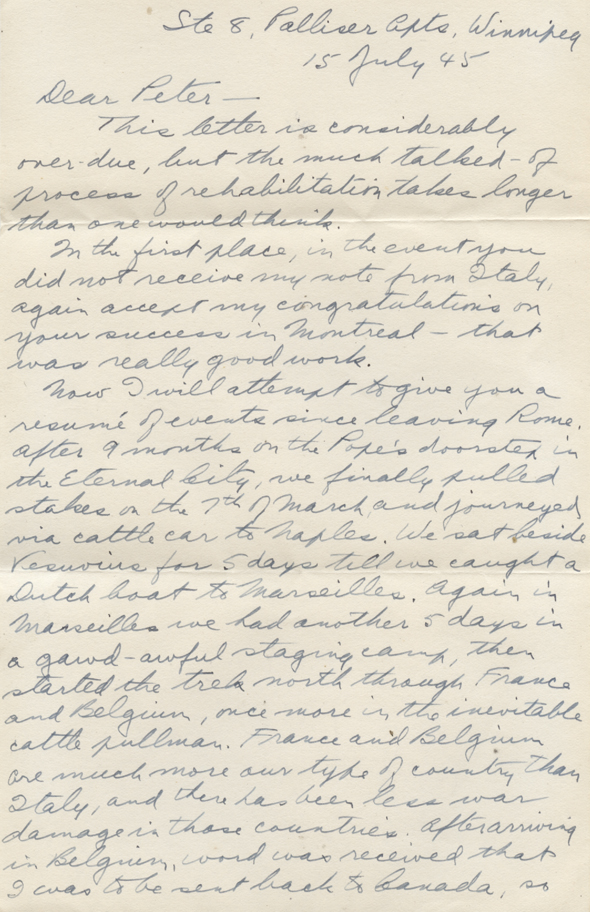 Ste 8, Palliser Apts, Winnipeg
15 July 45
Dear Peter —
This letter is considerably
over-due, but the much talked-of
process of rehabilitation takes longer
than one would think.
In the first place, in the event you
did not receive my note from Italy,
again accept my congratulations on
your success in Montreal — that
was really good work.
Now I will attempt to give you a
resumé of events since leaving Rome.
After 9 months on the Pope's doorstep in
the Eternal City, we finally pulled
stakes on the 7th of March and journeyed
via cattle car to Naples. We sat beside
Vesuvius for 5 days till we caught a
Dutch boat to Marseilles. Again in
Marseilles we had another 5 days in
a gawd-awful staging camp, then
started the trek north through France
and Belgium, once more in the inevitable
cattle pullman. France and Belgium
are much more our type of country than
Italy, and there has been less war
damage in those countries. After arriving
in Belgium, word was received that
I was to be sent back to Canada, so